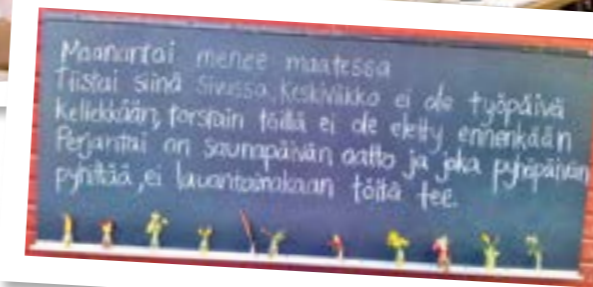 Maanantai menee maatessa
Tiistai siinä sivussa, Keskiviikko ei ole työpäivä
kellekkään, torstain töillä ei ole eletty ennenkään
Perjantai on saunapäivän aatto ja joka pyhäpäivän
pyhittää, ei lauantainakaan töitä tee.